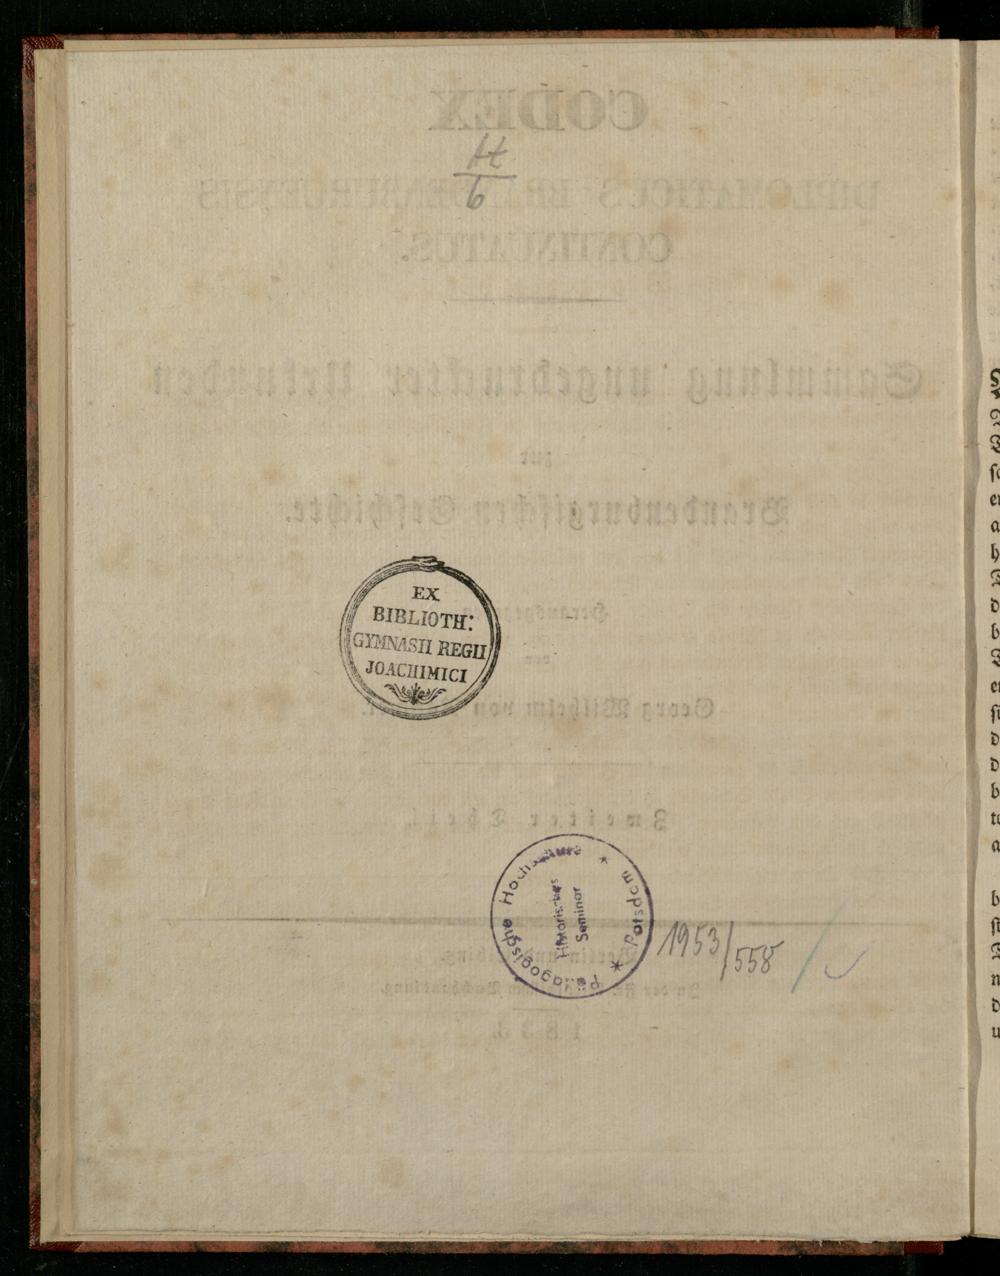 H
6
EX
BIBLIOTH:
GYMNASII REGII
JOACHIMICI
Pädagogische Hochschule
* Potsdam *
Historisches
Seminar
1953/558
CODEX
DIPLOMATICUS BRANDENBURGENSIS
CONTINUATUS.
Sammlung ungedruckter Urkunden
zur
Brandenburgischen Geschichte.
Herausgegeben
von
Georg Wilhelm von
Zweiter Theil.
Berlin
In der Buchhandlung.
1833.